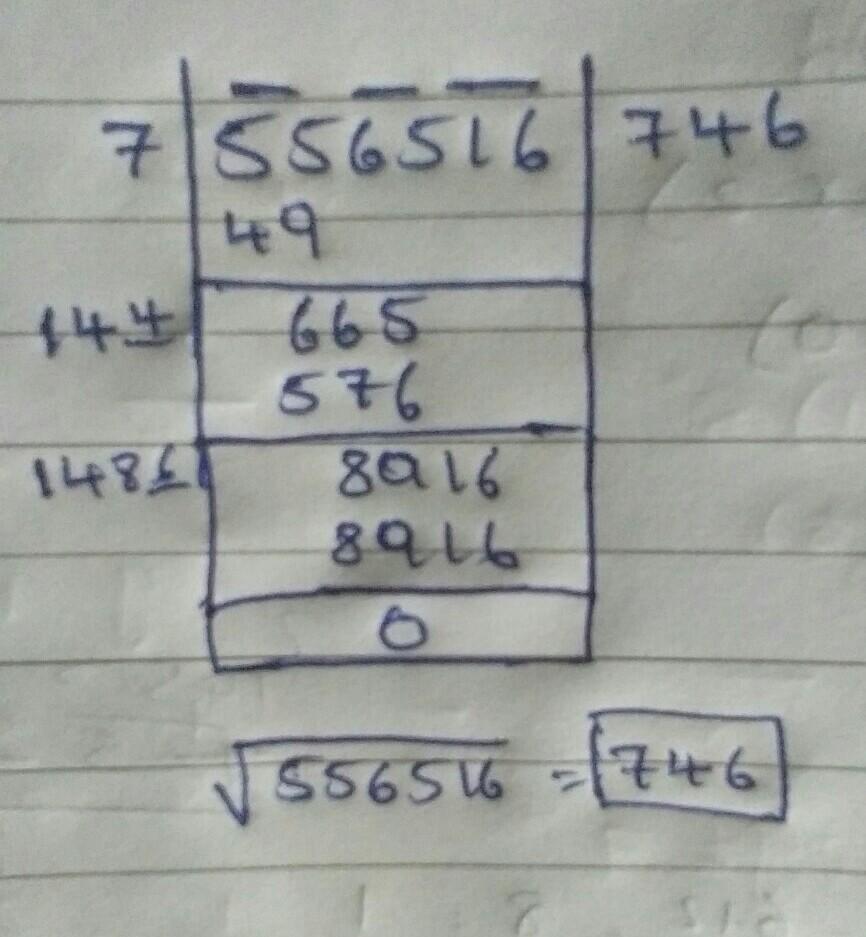 7 556516 746
49
144 665
576
1486 8916
8916
0
√556516 = 746